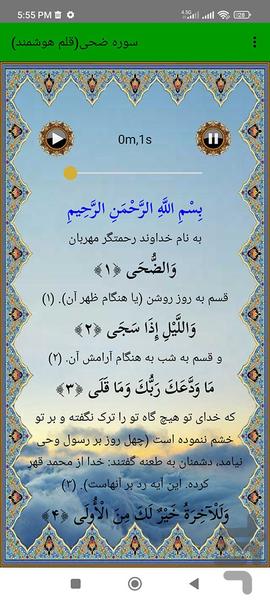 5:55 PM
سوره ضحی(قلم هوشمند)
0m,1s
بِسْمِ اللَّهِ الرَّحْمَنِ الرَّحِيمِ
به نام خداوند رحمتگر مهربان
وَالضُّحَى ﴿۱﴾
قسم به روز روشن (یا هنگام ظهر آن). (۱)
وَاللَّيْلِ إِذَا سَجَى ﴿۲﴾
و قسم به شب به هنگام آرامش آن. (۲)
مَا وَدَّعَكَ رَبُّكَ وَمَا قَلَى ﴿۳﴾
که خدای تو هیچ گاه تو را ترک نگفته و بر تو
خشم ننموده است (چهل روز بر رسول وحی
نیامد، دشمنان به طعنه گفتند: خدا از محمد قهر
کرده. این آیه رد بر آنهاست). (۳)
وَلَلْآخِرَةُ خَيْرٌ لَكَ مِنَ الْأُولَى ﴿۴﴾